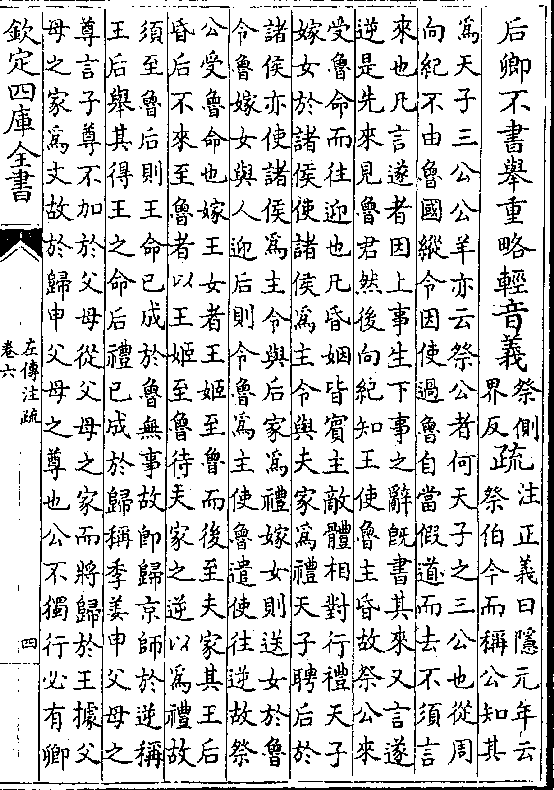 后卿不書舉重略輕音義祭側界反疏注正義曰隱元年云祭伯今而稱公知其
為天子三公公羊亦云祭公者何天子之三公也從周
向紀不由魯國縱令因使過魯自當假道而去不須言
來也凡言遂者因上事生下事之辭既書其來又言遂
逆是先來見魯君然後向紀知王使魯主昏故祭公來
受魯命而往迎也凡昏姻皆賓主敵體相對行禮天子
嫁女於諸侯使諸侯為主令與夫家為禮天子聘后於
諸侯亦使諸侯為主令與后家為禮嫁女則送女於魯
令魯嫁女與人迎后則令魯為主使魯遣使往逆故祭
公受魯命也嫁王女者王姬至魯而後至夫家其王后
昏后不來至魯者以王姬至魯待夫家之逆以為禮故
須至魯后則王命已成於魯無事故即歸京師於逆稱
王后舉其得王之命后禮已成於歸稱季姜申父母之
尊言子尊不加於父母從父母之家而將歸於王據父
母之家為文故於歸申父母之尊也公不獨行必有卿
欽定四庫全書
左傳注疏
卷六
四